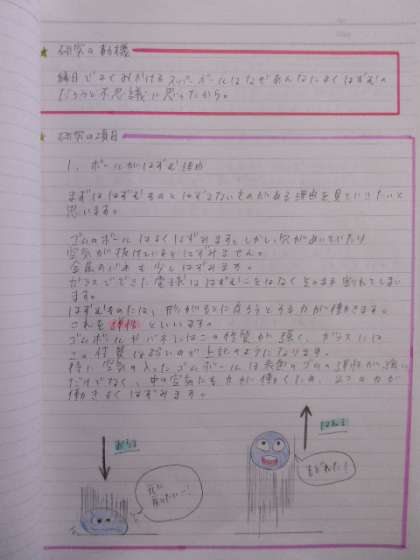 研究の動機
縁日でよくみかけるスーパーボールはなぜあんなによくはずむの
だろうと不思議に思ったから。
研究の項目
1. ボールがはずむ理由
まずははずむものとはずまないものがある理由を見ていきたいと
思います。
ゴムのボールはよくはずみます。しかし、穴があいていたり
空気が抜けているとはずみません。
金属のバネも少しはずみます。
ガラスでできた電球ははずむことはなくそのまま割れてしまい
ます。
はずむものには、形がもとに戻ろうとする力が働きます。
これを弾性といいます。
ゴムボールやバネにはこの性質が強く、ガラスには
この性質は弱いので上記のようになります。
特に空気の入ったゴムボールは表面のゴムの弾性が強い
だけでなく、中の空気にも力が働くため、2つの力が
働きよくはずみます。
おちる
元に戻りたいー!
はねる
もどれた!